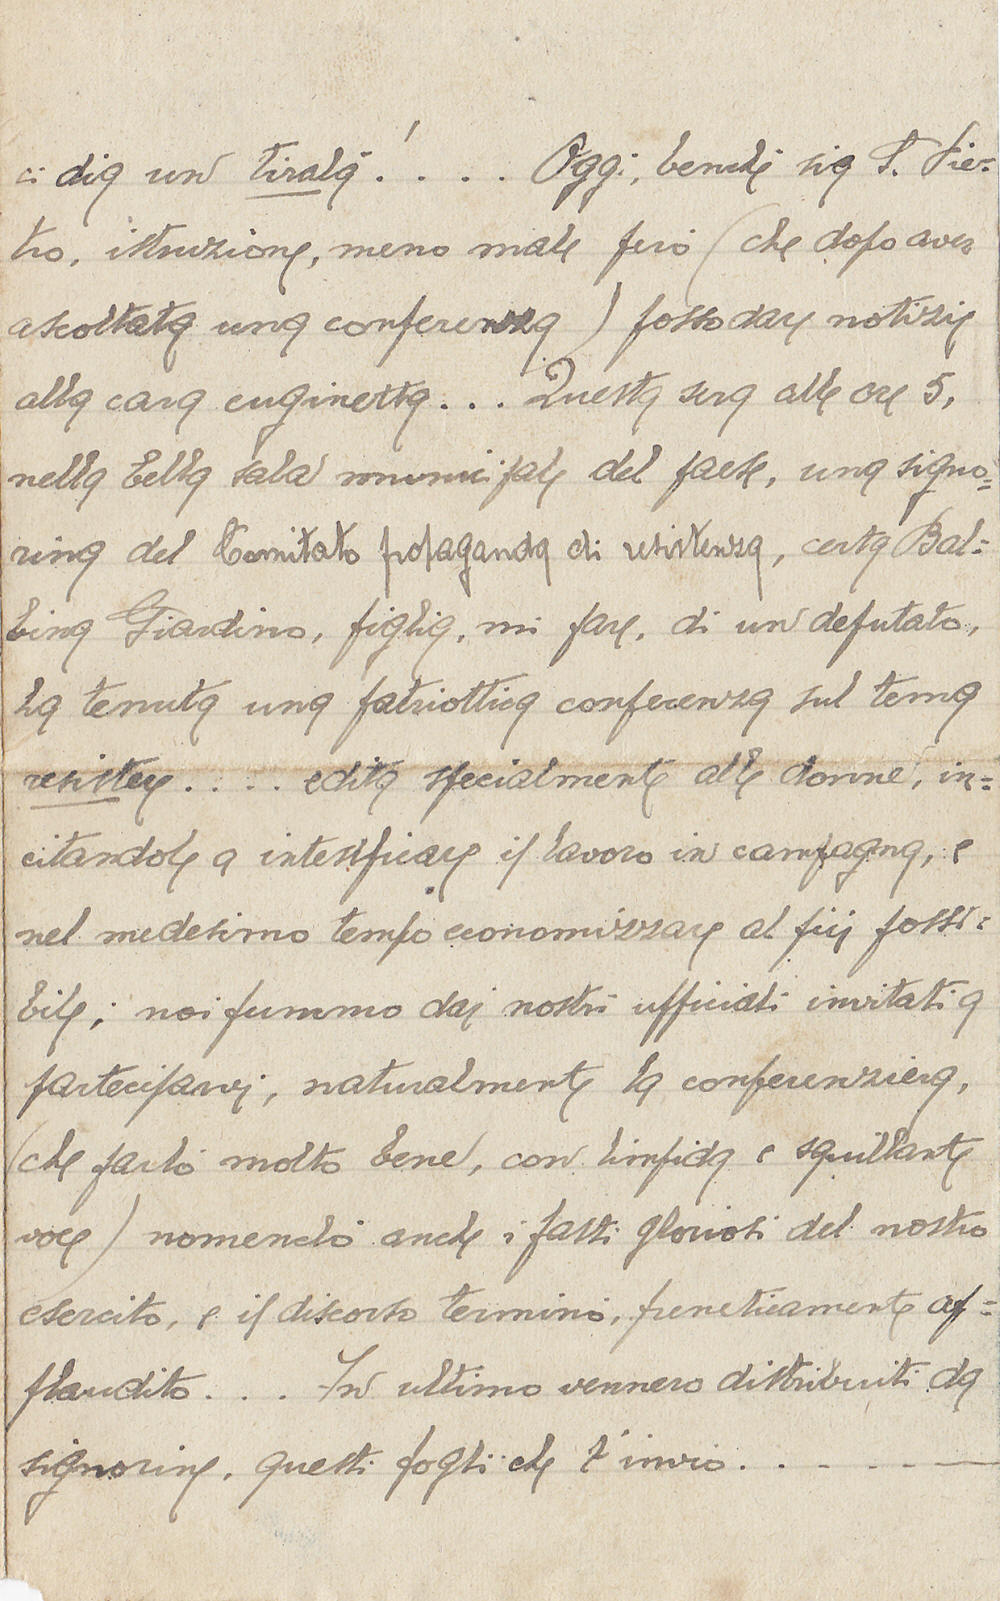 ci dia un tiralà! . . . . Oggi, benchè sia S. Pie=
tro, istruzione, meno male però (che dopo aver
ascoltata una conferenza) posso dare notizie
alla cara cuginetta. . . Questa sera alle ore 5,
nella bella sala municipale del paese, una signo=
rina del Comitato propaganda di resistenza, certa Bal=
bina Giardino, figlia, mi pare, di un deputato,
ha tenuta una patriottica conferenza sul tema
resistere . . . . edita specialmente alle donne, in=
citandole a intesificare il lavoro in campagna, e
nel medesimo tempo economizzare al più possi=
bile; noi fummo dai nostri ufficiali invitati a
parteciparvi, naturalmente la conferenziera,
(che parlò molto bene, con limpida e squillante
voce) nomenclò anche i fasti gloriosi del nostro
esercito, e il discorso terminò, freneticamente ap=
plaudito. . . In ultimo vennero distribuiti da
signorine, questi fogli che t'invio. . - - - -